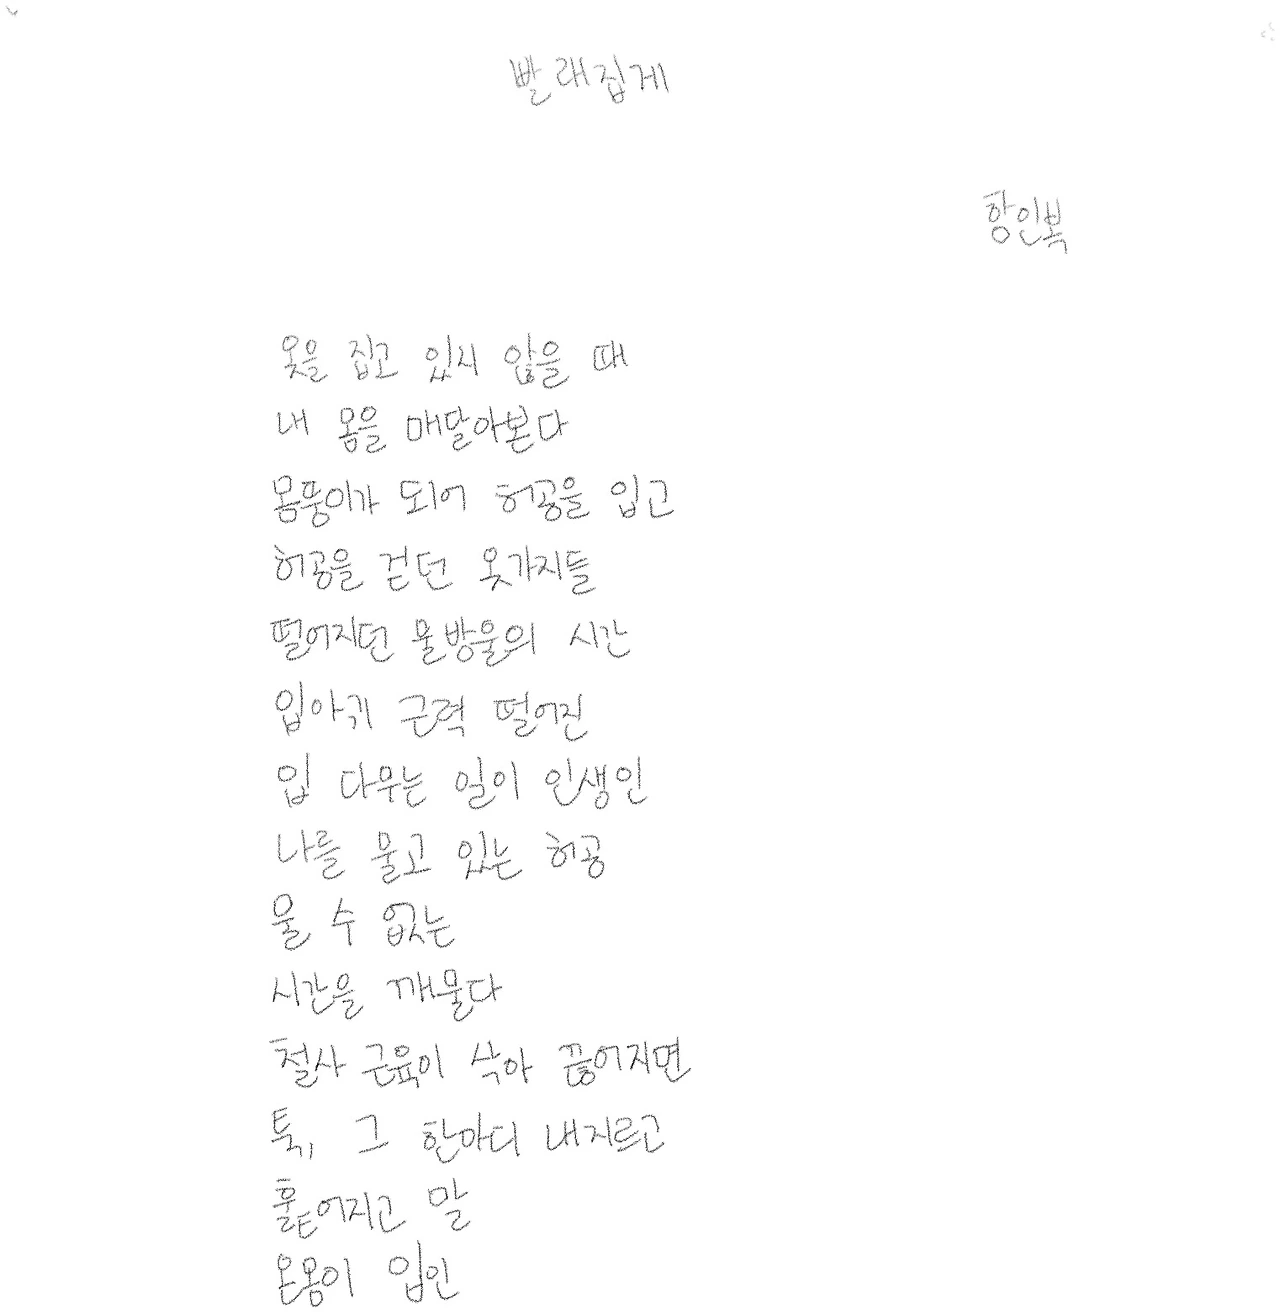 빨래집게
함인복
옷을 집고 있지 않을 때
내 몸을 매달아본다
몸뚱이가 되어 허공을 입고
허공을 걷던 옷가지들
떨어지던 물방울의 시간
입아귀 근력 떨어진
입 다무는 일이 인생인
나를 물고 있는 허공
울 수 없는
시간을 깨물다
철사 근육이 삭아 끊어지면
툭, 그 한마디 내지르고
훑어지고 말
온몸이 입인